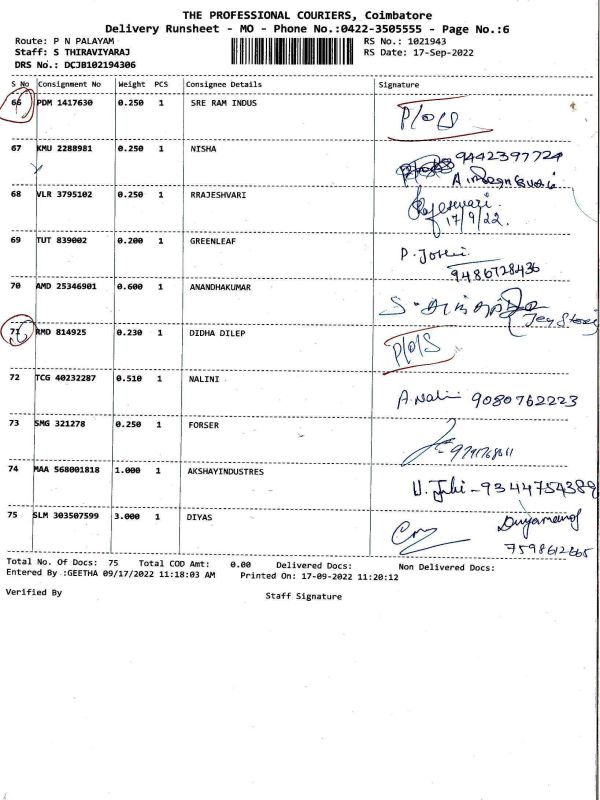 THE PROFESSIONAL COURIERS, Coimbatore
Delivery Runsheet - MO - Phone No.:0422-3505555 - Page No.:6
Route: P N PALAYAM RS No.: 1021943
Staff: S THIRAVIYARAJ RS Date: 17-Sep-2022
DRS No.: DCJB102194306
S No Consignment No Weight PCS Consignee Details Signature
66 PDM 1417630 0.250 1 SRE RAM INDUS P/O/S
67 KMU 2288981 0.250 1 NISHA 9442397724
68 VLR 3795102 0.250 1 RRAJESHVARI Rajeswari.
17/9/22.
69 TUT 839002 0.200 1 GREENLEAF P. Jothi
9486728436
70 AMD 25346901 0.600 1 ANANDHAKUMAR
71 RMD 814925 0.230 1 DIDHA DILEP P/O/S
72 TCG 40232287 0.510 1 NALINI A. Nalini 9080762223
73 SMG 321278 0.250 1 FORSER
74 MAA 568001818 1.000 1 AKSHAYINDUSTRES - 9344754389
75 SLM 303507599 3.000 1 DIYAS
7598612665
Total No. Of Docs: 75 Total COD Amt: 0.00 Delivered Docs: Non Delivered Docs:
Entered By :GEETHA 09/17/2022 11:18:03 AM Printed On: 17-09-2022 11:20:12
Verified By Staff Signature